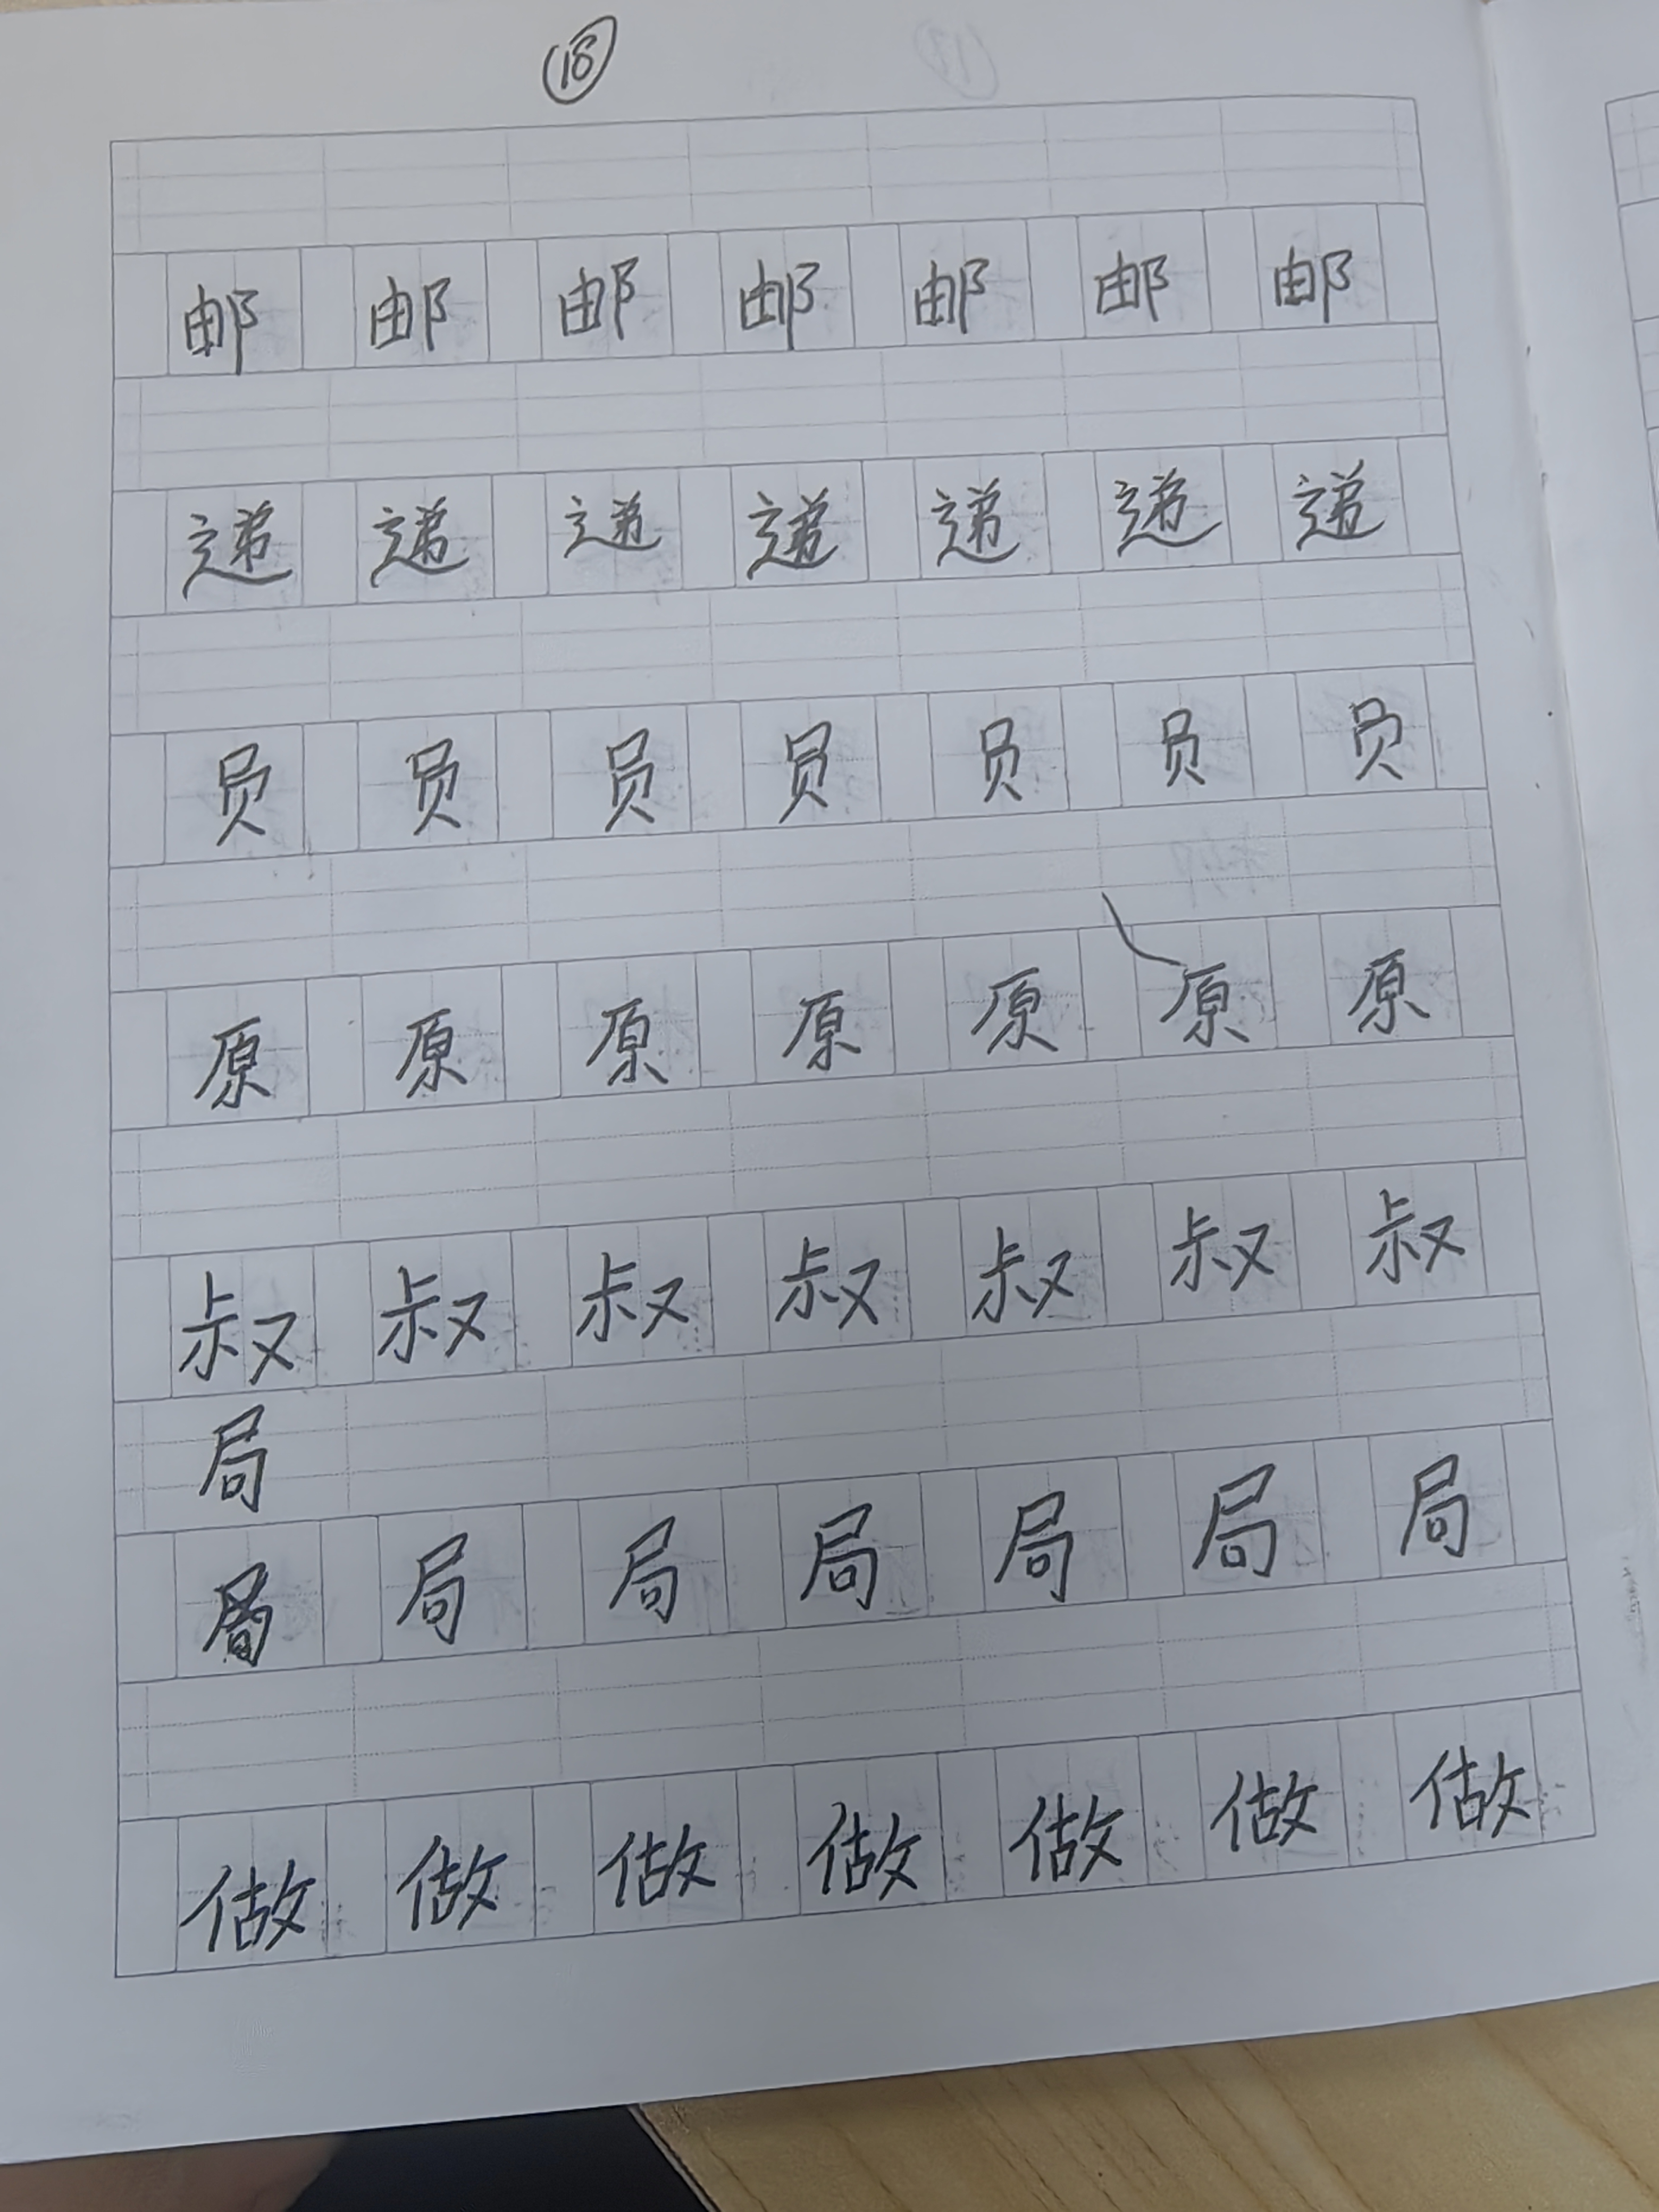 18
邮 邮 邮 邮 邮 邮 邮
递 递 递 递 递 递 递
员 员 员 员 员 员 员
原 原 原 原 原 原 原
叔 叔 叔 叔 叔 叔 叔
局
局 局 局 局 局 局
做 做 做 做 做 做 做